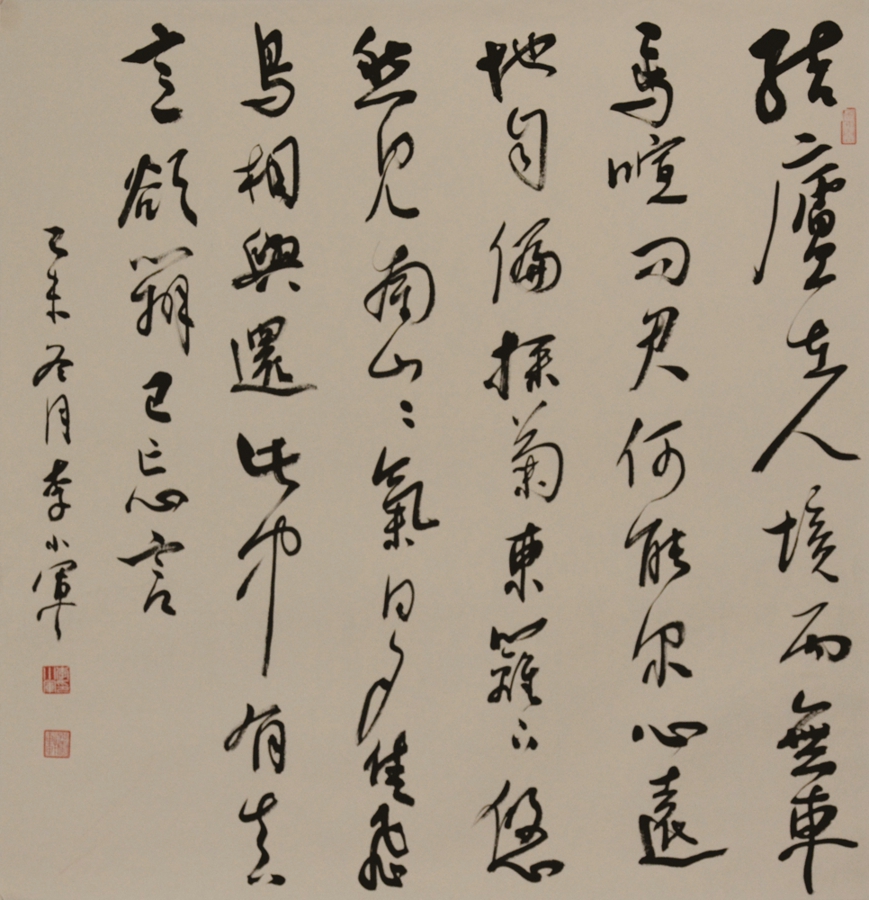 結廬在人境而無車
馬喧問君何能尔心遠
地自偏採菊東籬下悠
然見南山〻氣日夕佳飛
鳥相與還此中有真
意欲辨已忘言
乙未冬月李小軍